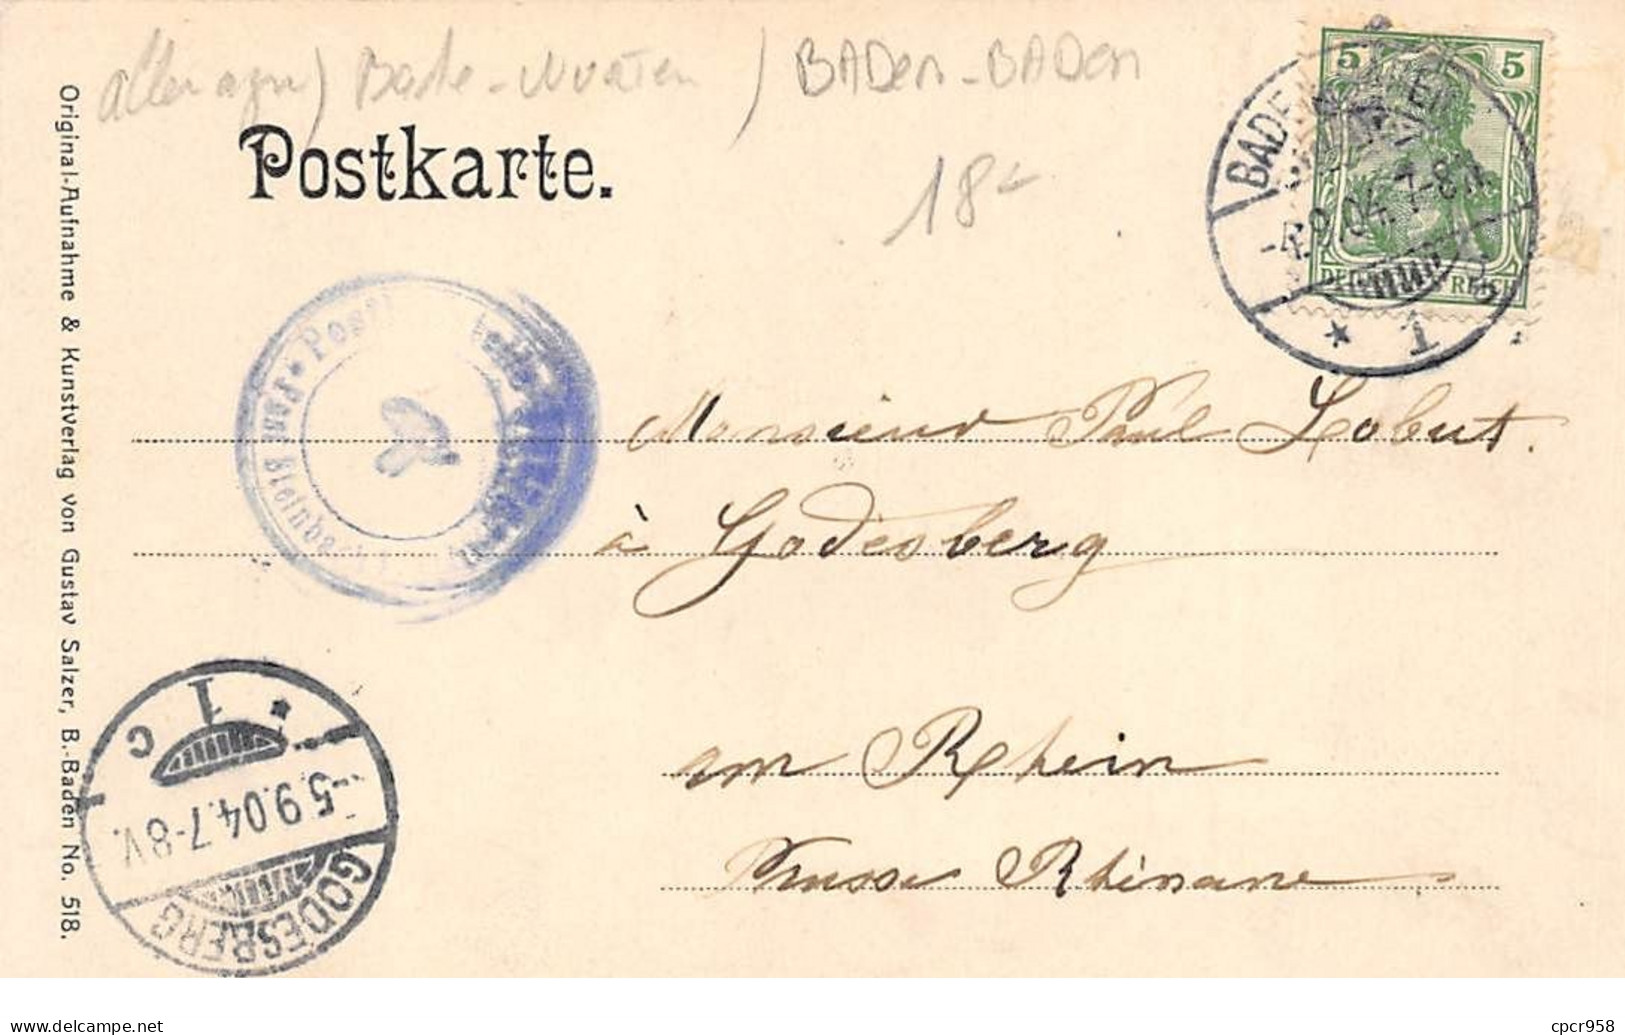 allemagne) Bade-Wurtem / BADen-BADen
18
Postkarte.
5 5
DEUTSCHES REICH
BADEN-BADEN
-4.9.04. 7-8N.
* 1
Post
Steinba
Monsieur Paul Lobut.
à Godesberg
am Rhein
Prusse Rhénane
GODESBERG
-5.9.04.7-8V.
* 1 c
Original-Aufnahme & Kunstverlag von Gustav Salzer, B.-Baden No. 518.
delcampe.net
cpcr958